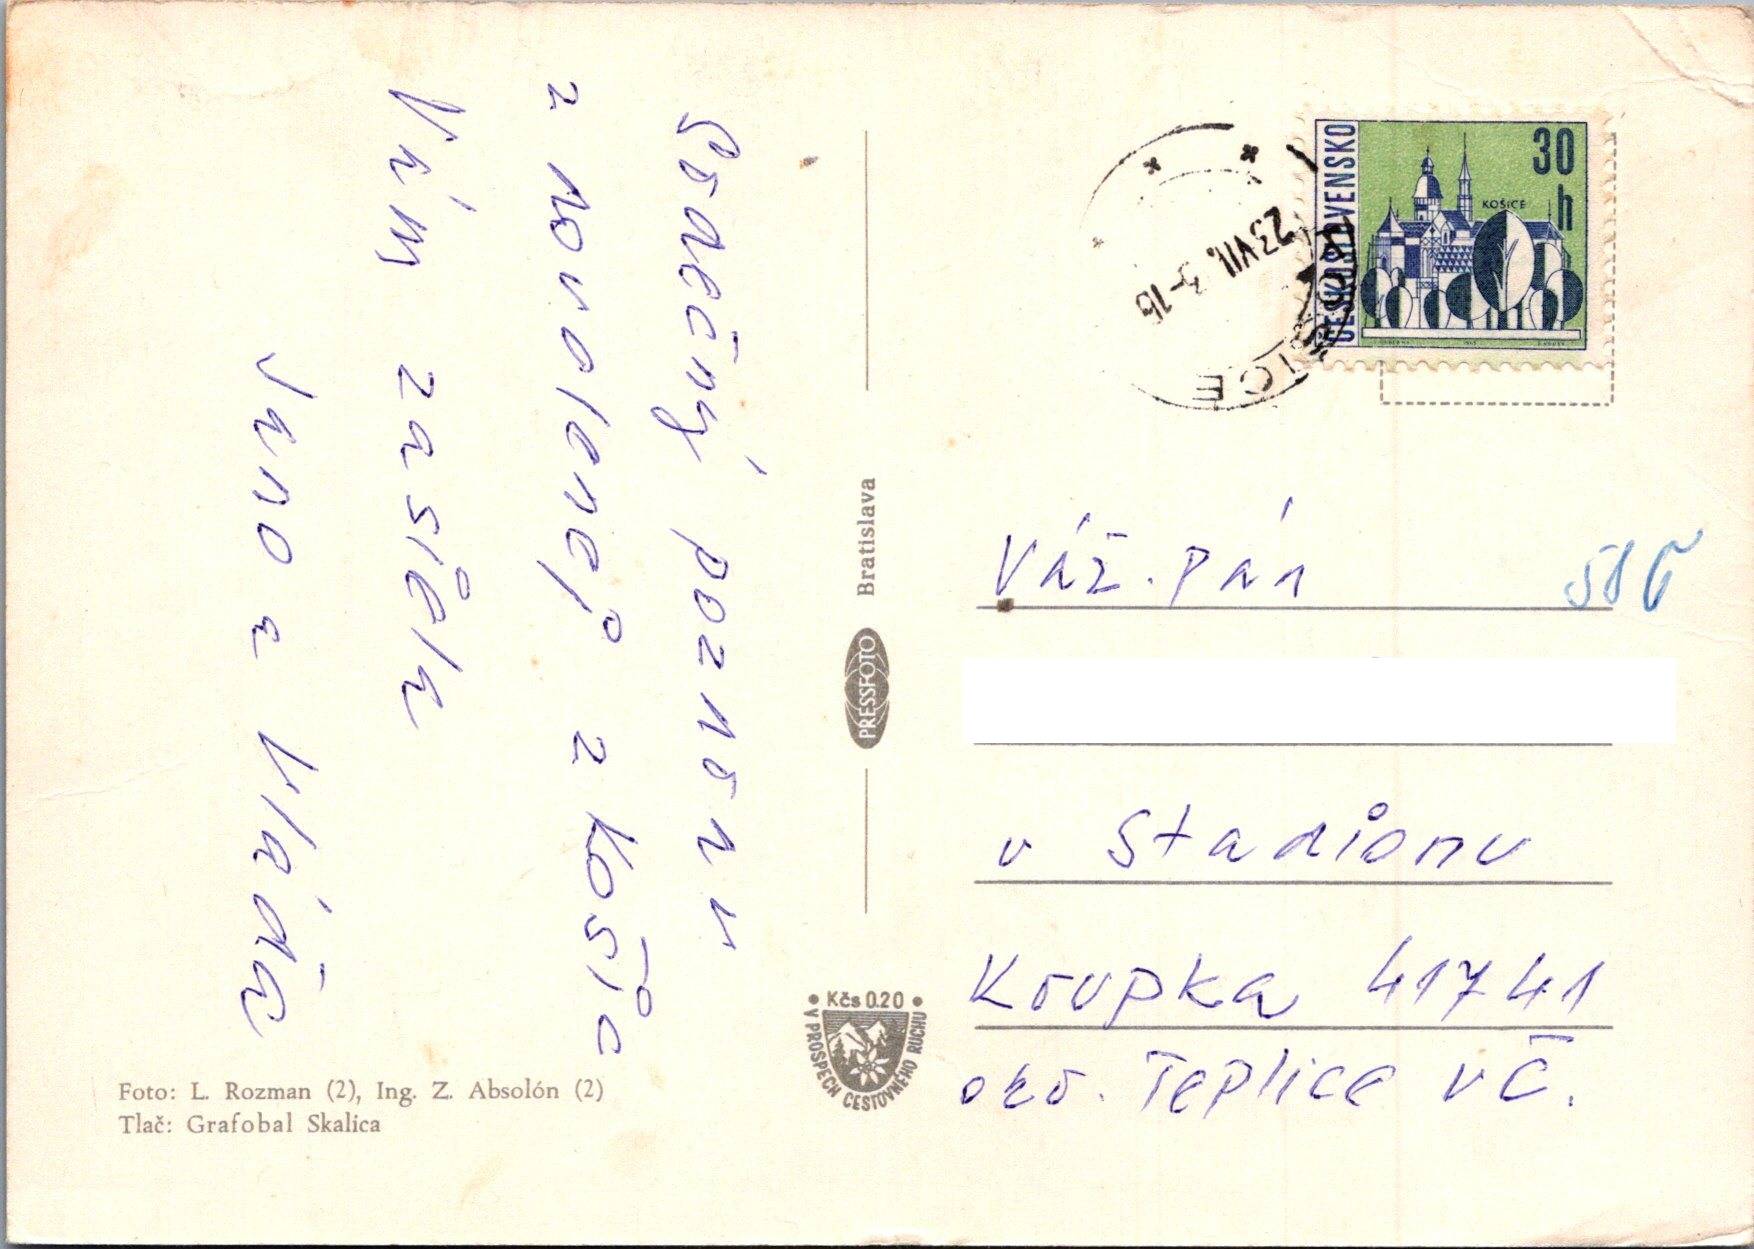 Srdečný pozdrav
z dovolenej z Košíc
Vám zasiela
Jano a Vlaďa
Foto: L. Rozman (2), Ing. Z. Absolón (2)
Tlač: Grafobal Skalica
Bratislava
PRESSFOTO
• Kčs 0.20 •
V PROSPECH CESTOVNÉHO RUCHU
ČESKOSLOVENSKO
30
h
KOŠICE
23.VII. 3-16
Váž. Pán
v Stadionu
Krupka 41741
okr. Teplice v Č.